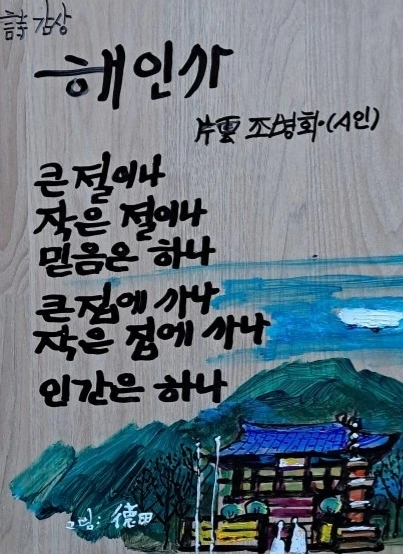 詩 감상
해인사
片雲 조병화·(시인)
큰절이나
작은 절이나
믿음은 하나
큰집에 사나
작은 집에 사나
인간은 하나
그림: 德田